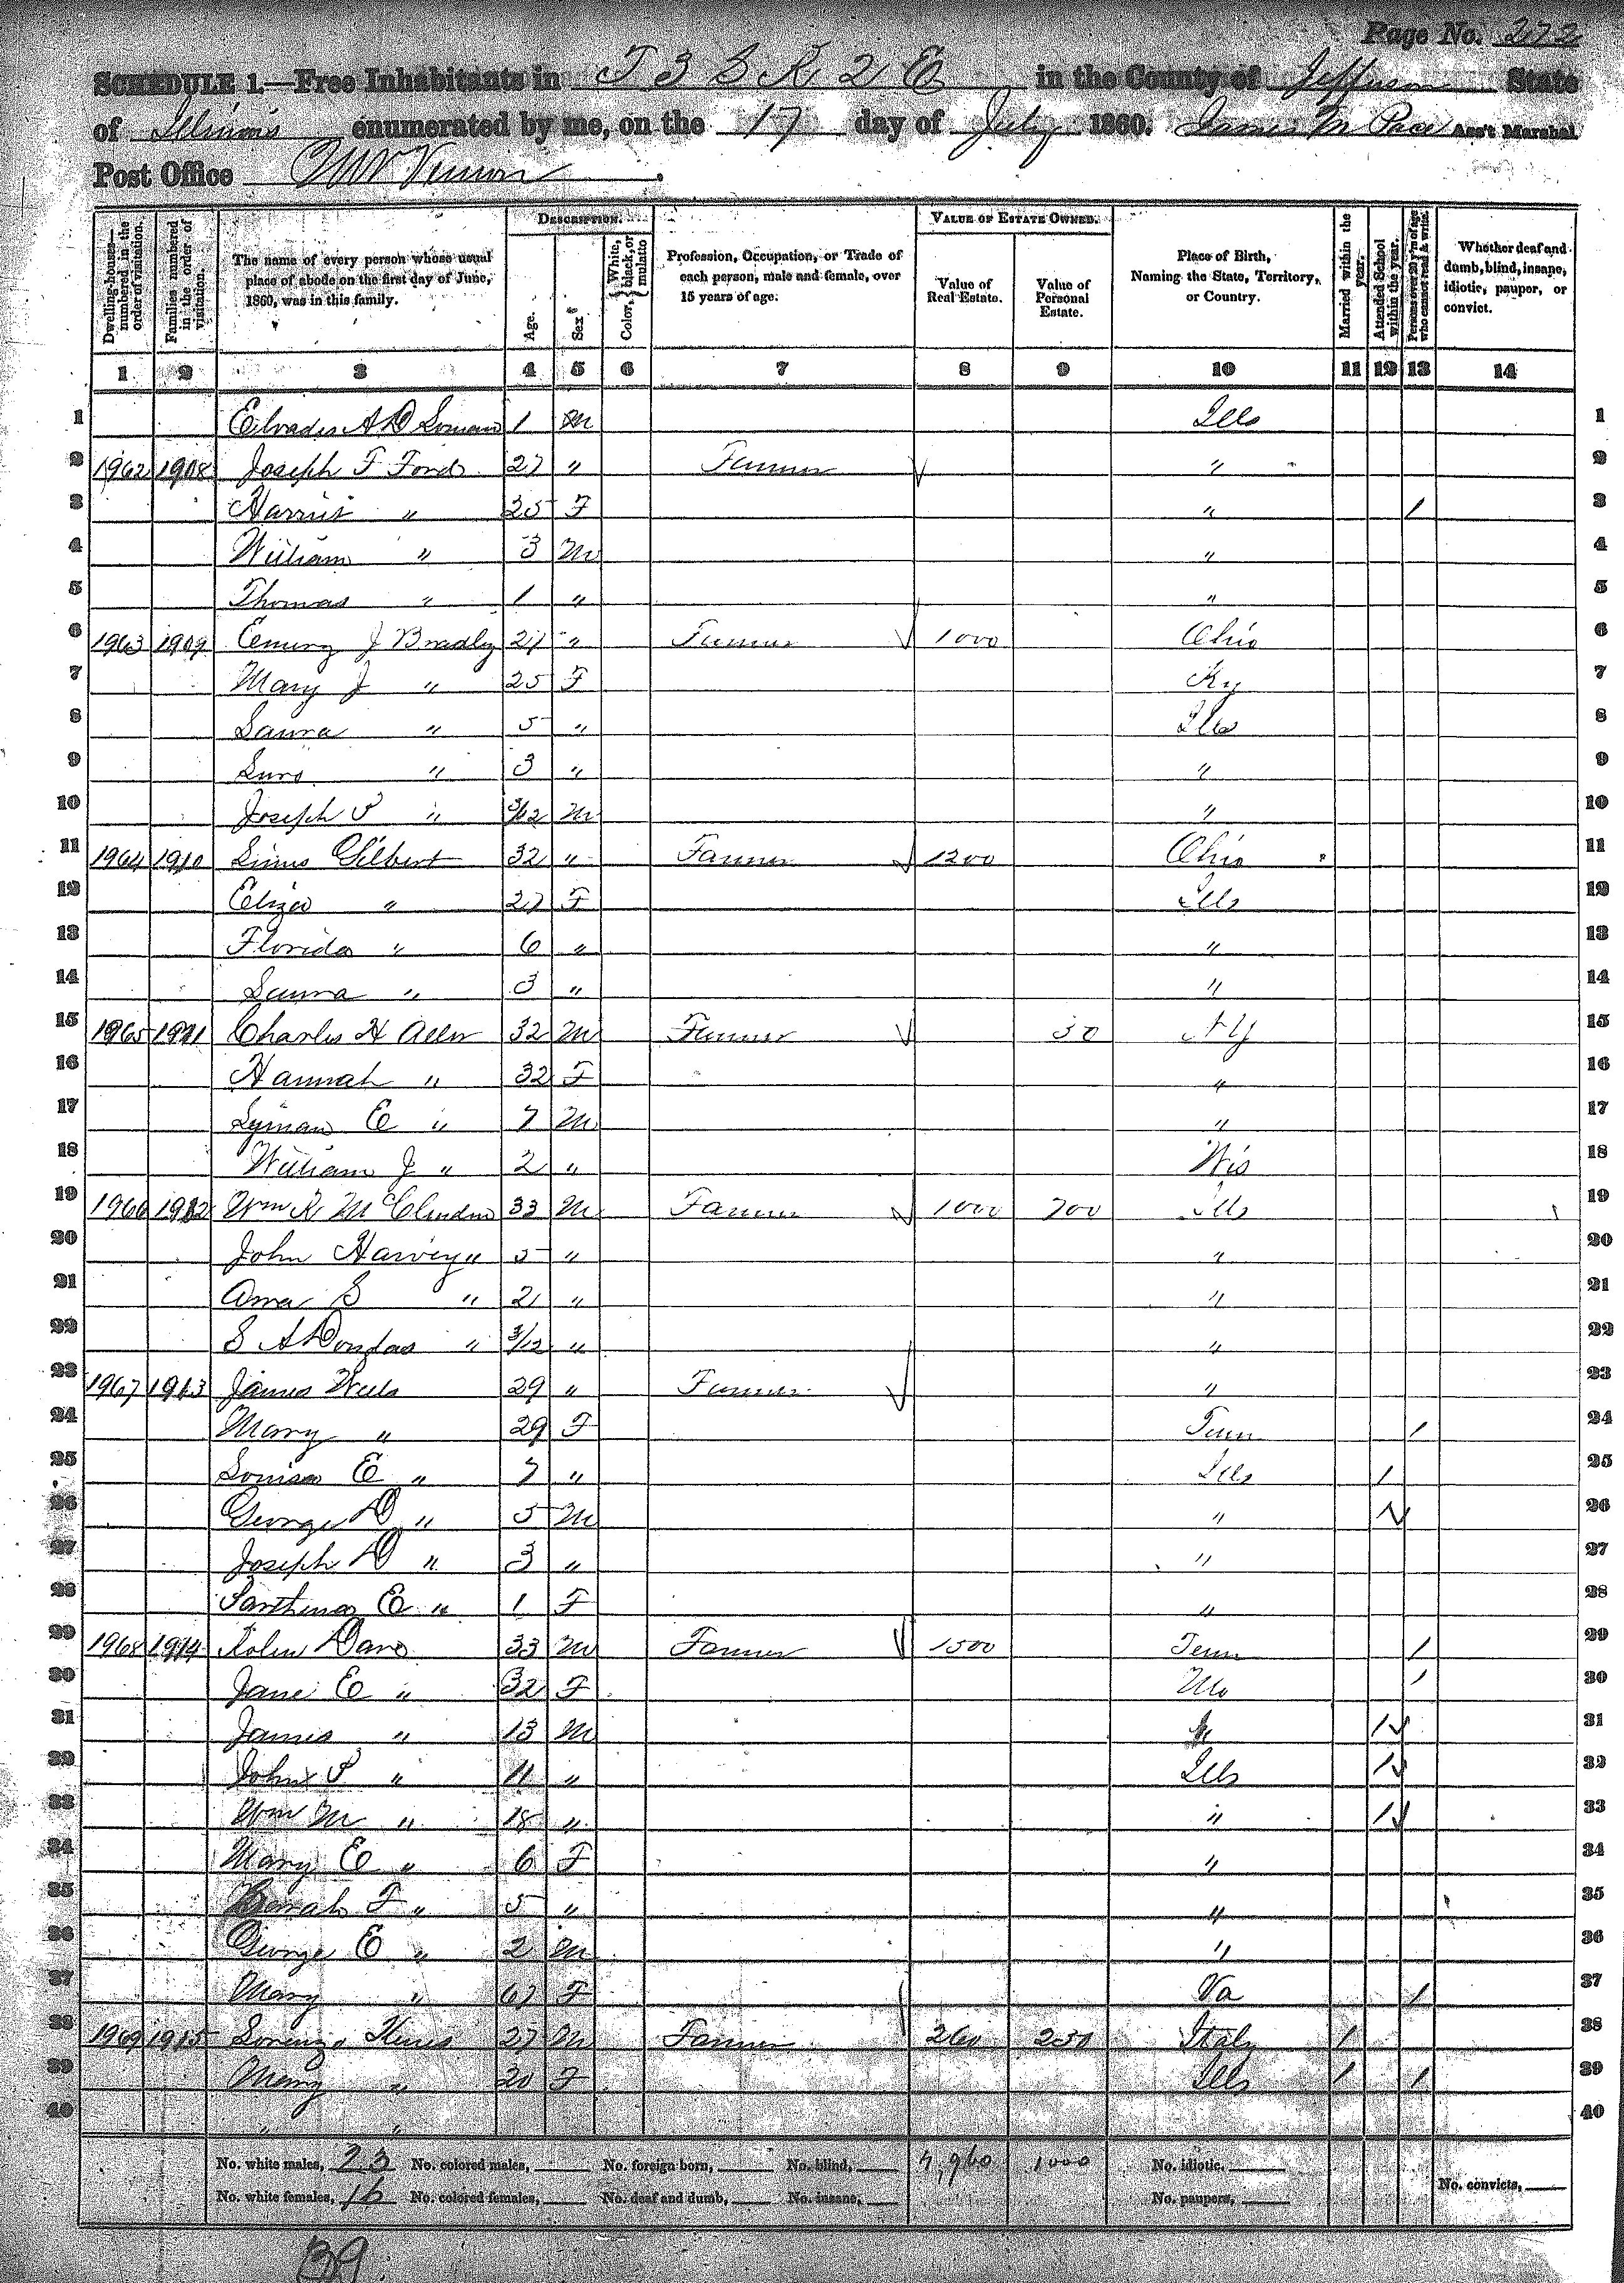 Page No. 272
SCHEDULE 1.—Free Inhabitants in T 3 S R 2 E in the County of Jefferson State
of Illinois enumerated by me, on the 17 day of July 1860. James M Pace Ass't Marshal.
Post Office Mt Vernon.
Dwelling-houses—numbered in the order of visitation. Families numbered in the order of visitation. The name of every person whose usual place of abode on the first day of June, 1860, was in this family. DESCRIPTION. Age. Sex. Color, {White, black, or mulatto Profession, Occupation, or Trade of each person, male and female, over 15 years of age. VALUE OF ESTATE OWNED. Value of Real Estate. Value of Personal Estate. Place of Birth, Naming the State, Territory, or Country. Married within the year. Attended School within the year. Persons over 20 y'rs of age who cannot read & write. Whether deaf and dumb, blind, insane, idiotic, pauper, or convict.
1 2 3 4 5 6 7 8 9 10 11 12 13 14
1 A D 1 M Ills 1
2 1962 1908 Joseph F Ford 27 " Farmer " 2
3 Harriet " 25 F " 1 3
4 William " 3 M " 4
5 Thomas " 1 " " 5
6 1963 1909 Emery J Bradley 27 " Farmer 1000 Ohio 6
7 Mary J " 25 F Ky 7
8 Laura " 5 " Ills 8
9 " 3 " " 9
10 Joseph P " 3/12 M " 10
11 1964 1910 Gilbert 32 " Farmer 1200 Ohio 11
12 Eliza " 27 F Ills 12
13 Florida " 6 " " 13
14 Laura " 3 " " 14
15 1965 1911 Charles H Allen 32 M Farmer 50 N Y 15
16 Hannah " 32 F " 16
17 Lyman E " 7 M " 17
18 William J " 2 " Wis 18
19 1966 1912 Wm K 33 M Farmer 1000 700 Ills 19
20 John Harvey " 5 " " 20
21 S " 2 " " 21
22 S A " 3/12 " " 22
23 1967 1913 James Wells 29 " Farmer " 23
24 Mary " 29 F Tenn 1 24
25 Louisa E " 7 " Ills 1 25
26 George D " 5 M " 1 26
27 Joseph D " 3 " " 27
28 E " 1 F " 28
29 1968 1914 33 M Farmer 1500 Tenn 1 29
30 Jane E " 32 F Mo 1 30
31 James " 13 M " 1 31
32 John P " 11 " Ills 1 32
33 Wm M " " " 1 33
34 Mary E " 6 F " 34
35 Sarah F " 5 " " 35
36 George E " 2 M " 36
37 Mary " 67 F Va 1 37
38 1969 1915 Lorenzo 27 M Farmer 260 250 Italy 1 38
39 Mary " 20 F Ills 1 1 39
40 " " 40
No. white males, 23 No. colored males, No. foreign born, No. blind, 4,960 1000 No. idiotic,
No. white females, 16 No. colored females, No. deaf and dumb, No. insane, No. paupers, No. convicts,
39